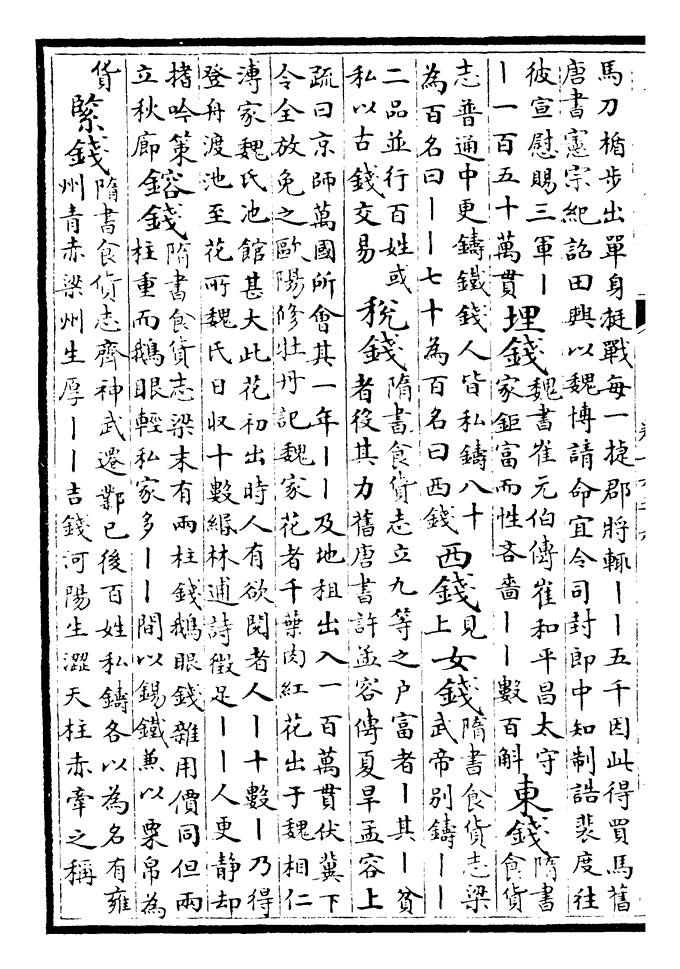 馬刀楯步出單身挺戰每一捷郡將輒丨丨五千因此得買馬舊
唐書憲宗紀詔田興以魏博請命宜令司封郎中知制誥裴度往
彼宣慰賜三軍丨
丨一百五十萬貫
埋錢
魏書崔元伯傳崔和平昌太守
家鉅富而性吝嗇丨丨數百斛
東錢
隋書
食貨
志普通中更鑄鐵錢人皆私鑄八十
為百名曰丨丨七十為百名曰西錢
西錢
見
上
女錢
隋書食貨志梁
武帝別鑄丨丨
二品並行百姓或
私以古錢交易
稅錢
隋書食貨志立九等之户富者丨其丨貧
者役其力舊唐書許孟容傳夏旱孟容上
疏曰京師萬國所會其一年丨丨及地租出入一百萬貫伏冀下
令全放免之歐陽修牡丹記魏家花者千葉肉紅花出于魏相仁
溥家魏氏池館甚大此花初出時人有欲閱者人丨十數丨乃得
登舟渡池至花所魏氏日收十數緡林逋詩徵足丨丨人更静却
揩吟策
立秋廊
鎔錢
隋書食貨志梁末有兩柱錢鵝眼錢雜用價同但兩
柱重而鵝眼輕私家多丨丨間以錫鐵兼以粟帛為
貨
緊錢
隋書食貨志齊神武遷鄴已後百姓私鑄各以為名有雍
州青赤梁州生厚丨丨吉錢河陽生澀天柱赤牽之稱